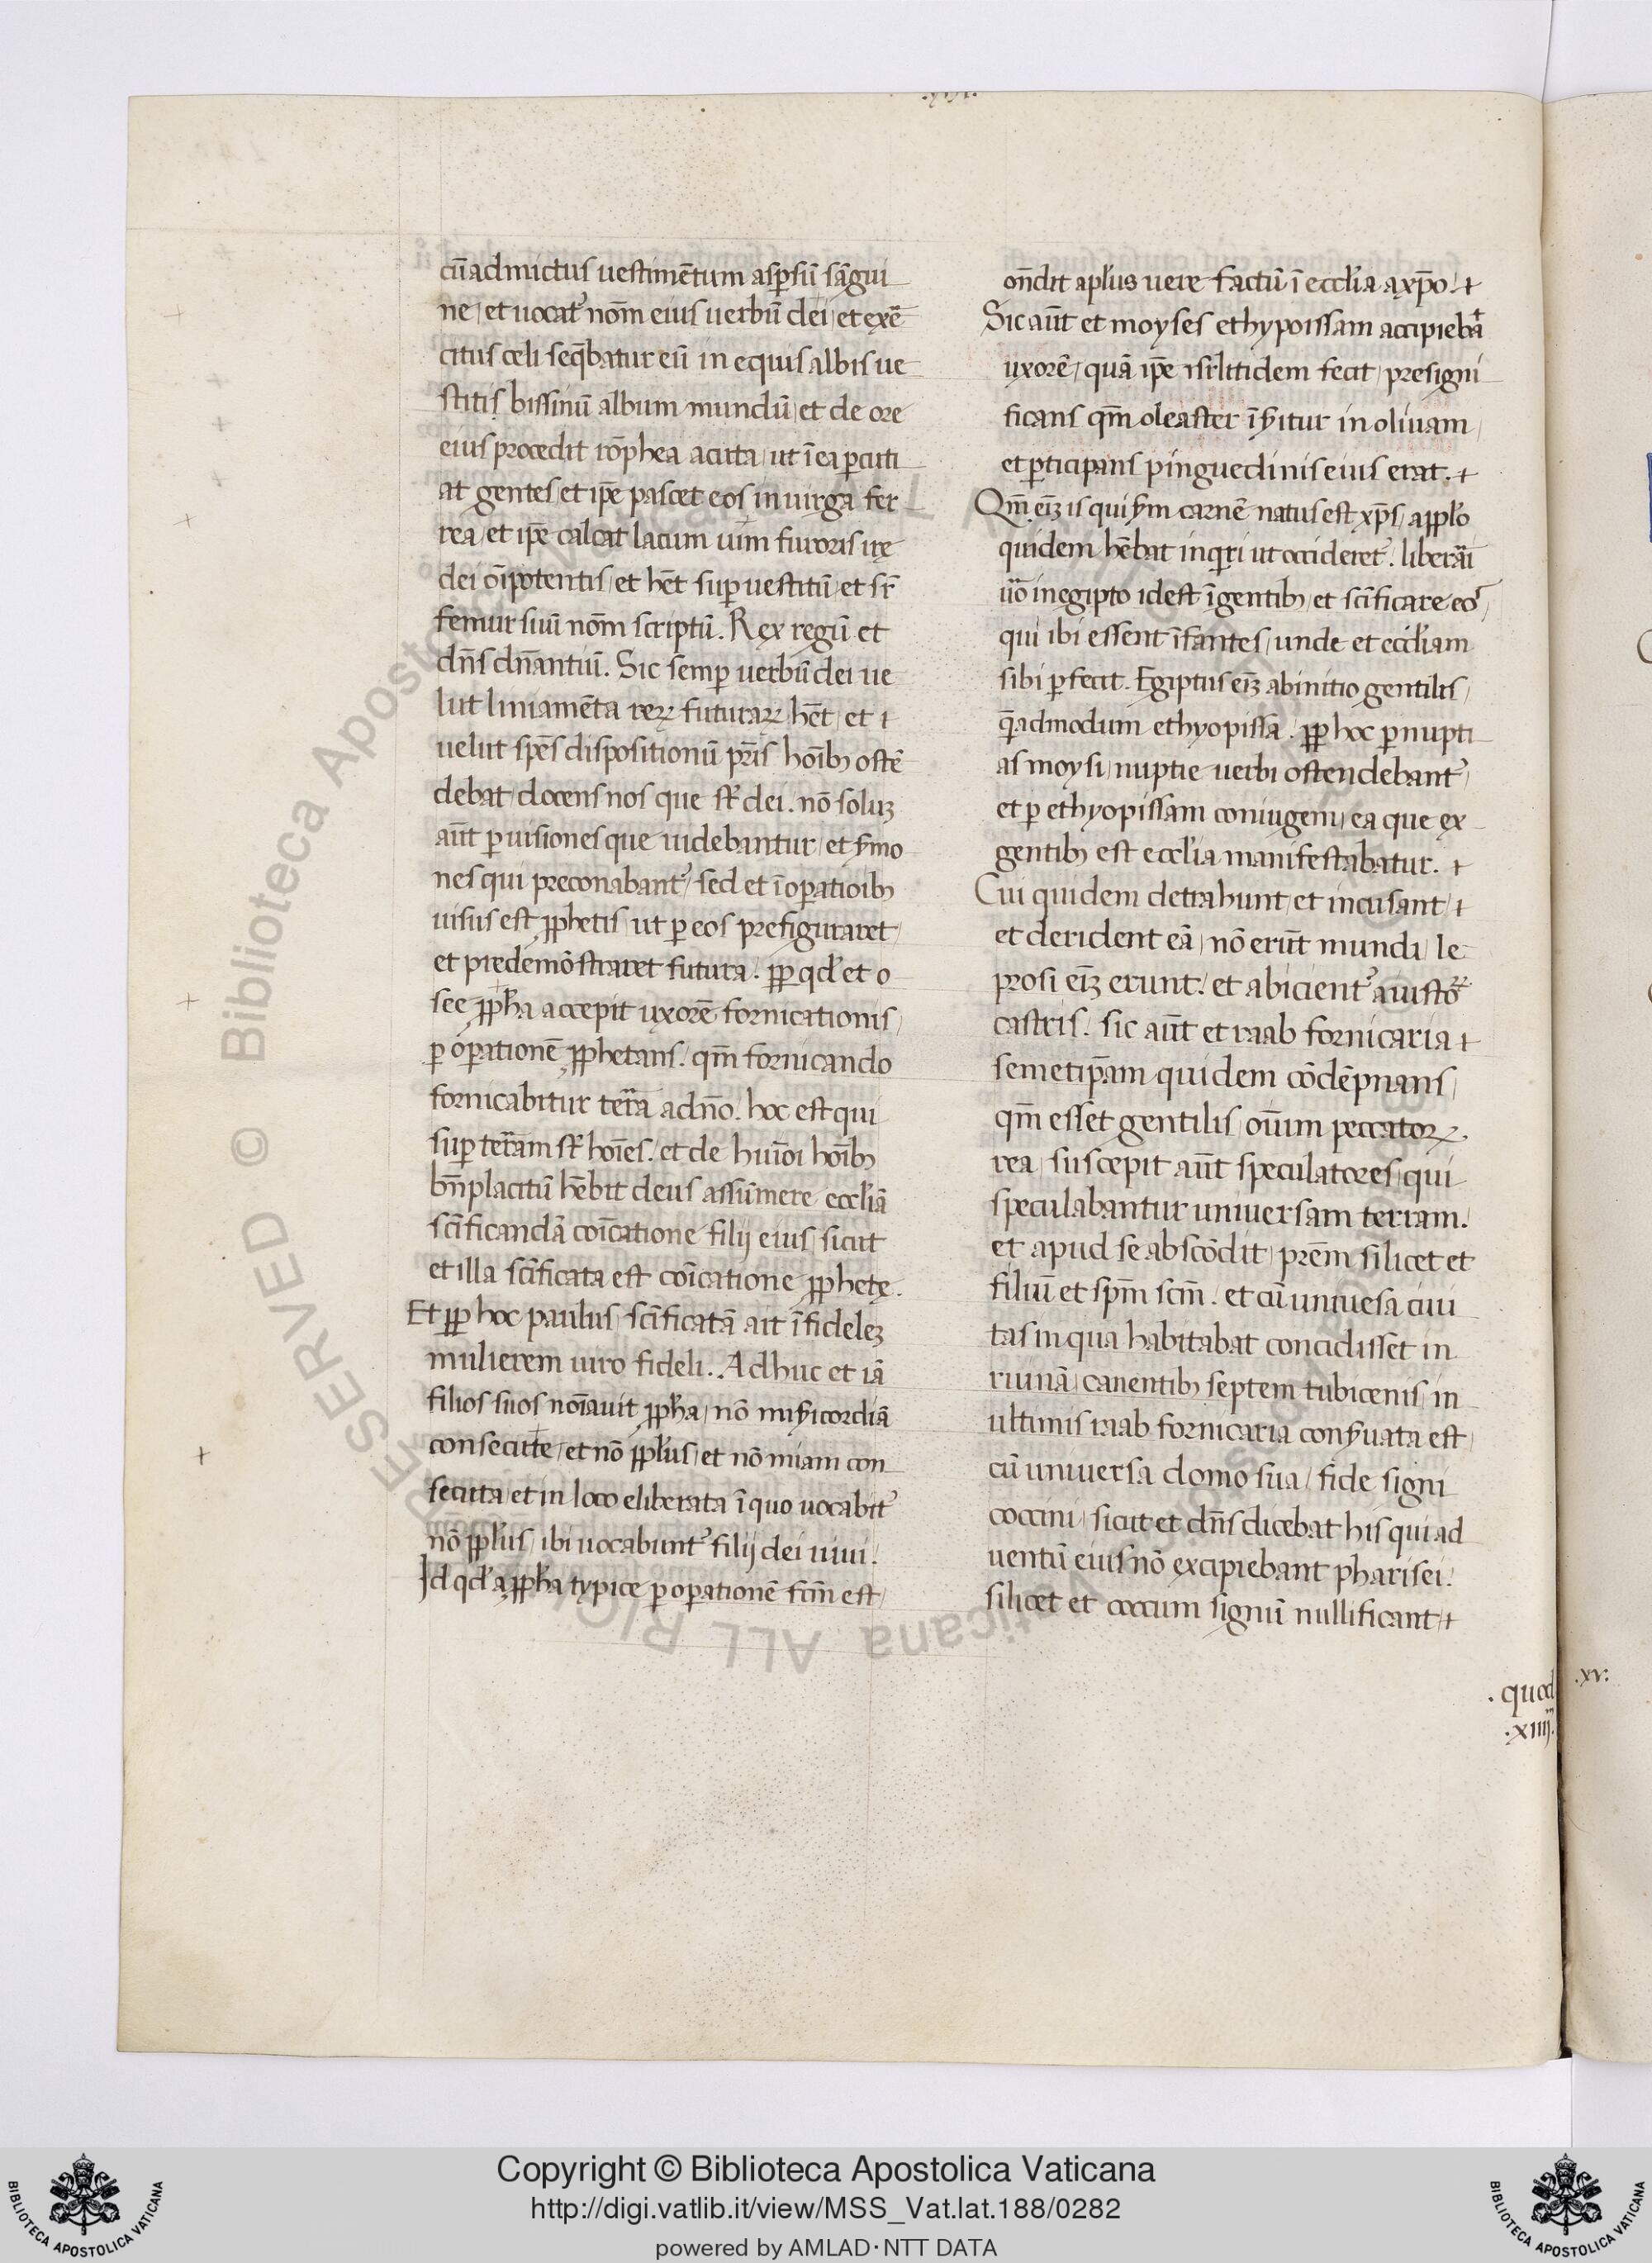 cū admictus uestimētum asꝑsū sāgui
ne, et uocat᷒ nōm eius uerbū dei, et exē
citus celi seq̄batur eū in equis albis ue
stitis bissinū album mundū, et de ore
eius procedit rōphea acuta, ut ī ea ꝑcuti
at gentes, et ip̄e pascet eos in uirga fer
rea, et ip̄e calcat lacum uini furoris irę
dei oīpotentis, et hēt suꝑ uestitū, et sr̄
femur suū nōm scriptū. Rex regū et
dn̄s dn̄antiū. Sic semꝑ uerbū dei ue
lut liniamēta reꝝ futuraꝝ hēt, et ⁊
uelut spēs dispositionū pr̄is hoībꝫ ostē
debat, docens nos que st᷒ dei. nō soluꝫ
aūt ꝑ uisiones que uidebantur, et ẏmo
nes qui preconabant᷒, sed et ī oꝑatioibꝫ
uisus est ꝓphetis, ut ꝑ eos prefiguraret,
et predemōstraret futura. ꝓp qd̓ et o
see ꝓpha accepit uxorē fornicationis,
ꝑ oꝑationē ꝓphetans. qm̄ fornicando
fornicabitur terra a dn̄o. hoc est qui
suꝑ terram st᷒ hoīes. et de huīoi hoībꝫ
bn̄placitū hēbit deus assūmere eccl̓iā
scīficandā coīcatione filij eius, sicut
et illa scīficata est coīcatione ꝓphetę.
Et ꝓp hoc paulus, scīficatā ait īfideleꝫ
mulierem uiro fideli. Adhuc et iā
filios suos noīauit ꝓpha, nō miẏicordiā
consecute, et nō ꝓplus, et nō miam con
secuta, et in loco eliberata ī quo uocabit᷒
nō ꝓplus, ibi uocabunt᷒ filij dei uiui.
Id qd̓ a ꝓpha typice ꝑ oꝑationē fcm̄ est,
on̄dit apl̓us uere factū ī eccl̓ia a xp̄o. ⁊
Sic aūt et moyses ethypoissam accipiebat
uxorē, quā ip̄e isrl̓itidem fecit, presigni
ficans qm̄ oleaster īẏitur in oliuam,
et ꝑticipans pinguedinis eius erat. ⁊
Qm̄ eīꝫ is qui ẏm carnē natus est xp̄s, a ꝓpl̓o
quidem hēbat inqͥri ut occideret᷒. liberari
uō in egipto idest ī gentibꝫ, et scīficare eos,
qui ibi essent īfantes, unde et eccl̓iam
sibi ꝑfecit. Egiptus eīꝫ ab initio gentilis,
q̄admodum ethyopissa. ꝓp hoc ꝑ nupti
as moysi, nuptie uerbi ostendebant᷒,
et ꝑ ethyopissam coniugem, ea que ex
gentibꝫ est eccl̓ia manifestabatur. ⁊
Cui quidem detrahunt, et incusant, ⁊
et derident eā, nō erūt mundi, le
prosi eīꝫ erunt. et abicient᷒ a iustoꝝ
castris. sic aūt et raab fornicaria ⁊
semetip̄am quidem cōdēpnans,
qm̄ esset gentilis, oūm peccatoꝝ.
rea, suscepit aūt speculatores, qui
speculabantur uniuersam terram.
et apud se abscōdit, prēm silicet et
filiū et spm̄ scm̄. et cū uniuesa ciui
tas in qua habitabat concidisset in
ruinā, canentibꝫ septem tubicenis, in
ultimis raab fornicaria conẏuata est,
cū uniuersa domo sua, fide signi
coccini, sicut et dn̄s dicebat his qui ad
uentū eius nō excipiebant pharisei.
silicet et coccum signū nullificant, ⁊
.xv:
. quod
.xiiij.
Copyright © Biblioteca Apostolica Vaticana
http://digi.vatlib.it/view/MSS_Vat.lat.188/0282
powered by AMLAD·NTT DATA